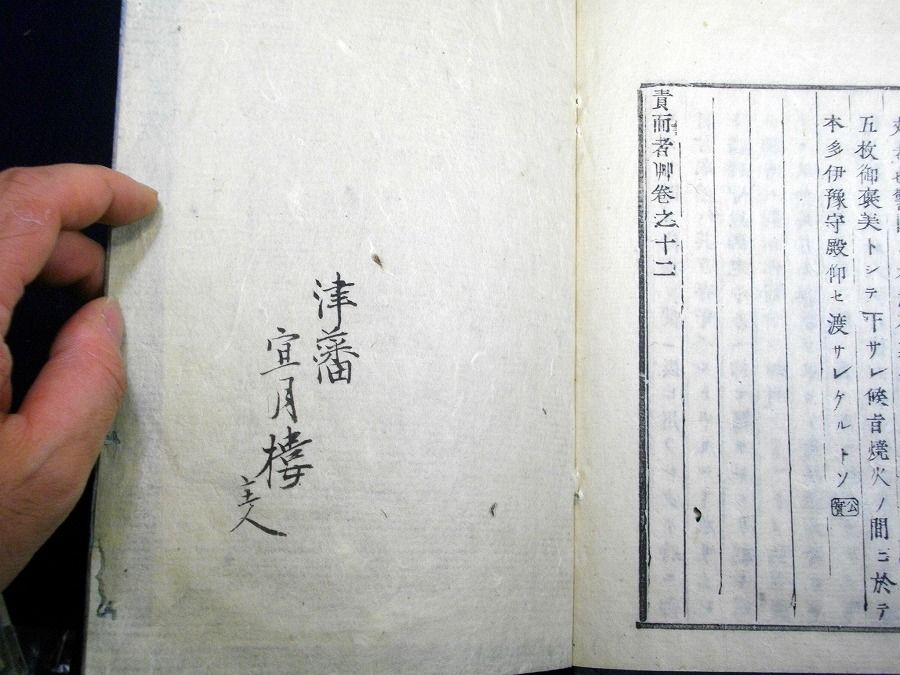 五枚御褒美トシテ下サレ候旨焼火ノ間ニ於テ
本多伊豫守殿仰セ渡サレケルトソ
公實
責而者艸卷之十二
津藩
宜月樓
主人